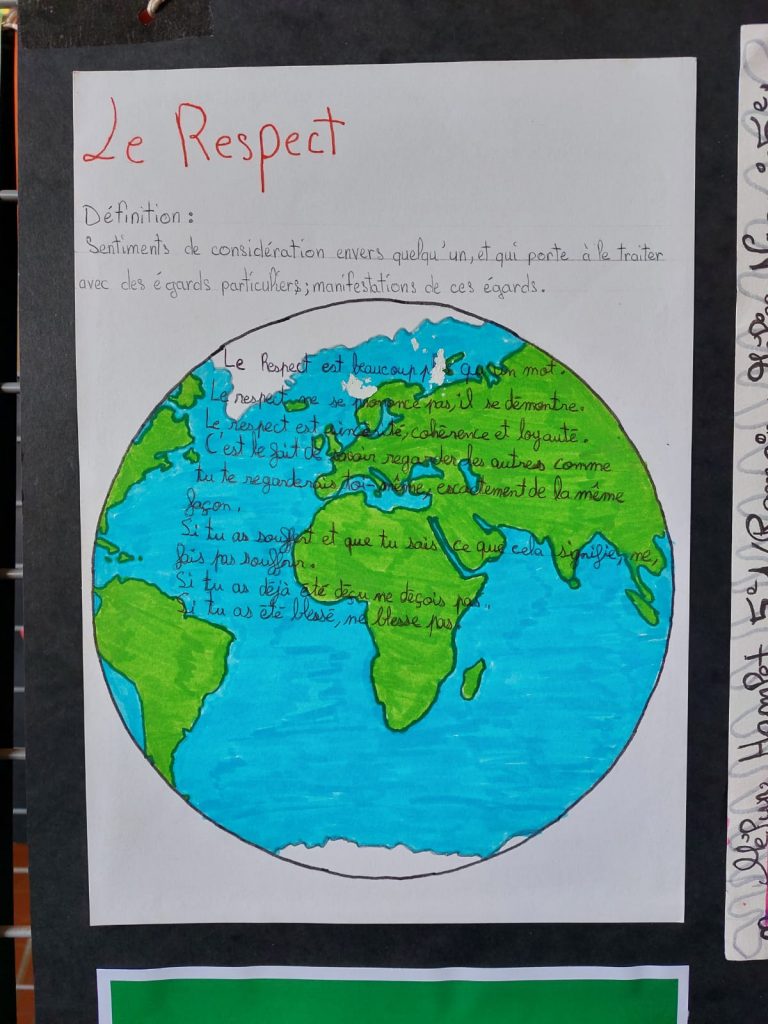 Le Respect
Définition :
Sentiments de considération envers quelqu'un, et qui porte à le traiter
avec des égards particuliers; manifestations de ces égards.
Le Respect est beaucoup qu'un mot.
Le respect ne se prononce pas, il se démontre.
Le respect est sincérité, cohérence et loyauté.
C'est le fait de savoir regarder les autres comme
tu te regarderais toi-même, escactement de la même
façon.
Si tu as souffert et que tu sais ce que cela signifie, ne,
fais pas souffrir.
Si tu as déjà été déçu ne deçois pas.
Si tu as été blessé, ne blesse pas.
Hamlet 5e1